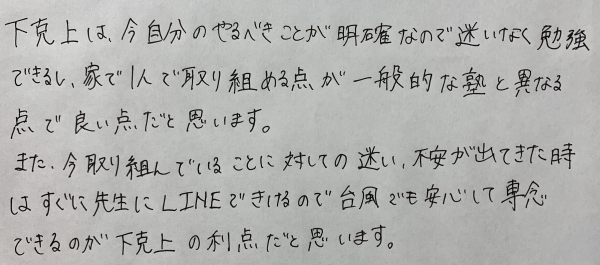 下克上は、今自分のやるべきことが明確なので迷いなく勉強
できるし、家で1人で取り組める点が一般的な塾と異なる
点で良い点だと思います。
また、今取り組んでいることに対しての迷い、不安が出てきた時
はすぐに先生にLINEできけるので台風でも安心して専念
できるのが下克上の利点だと思います。